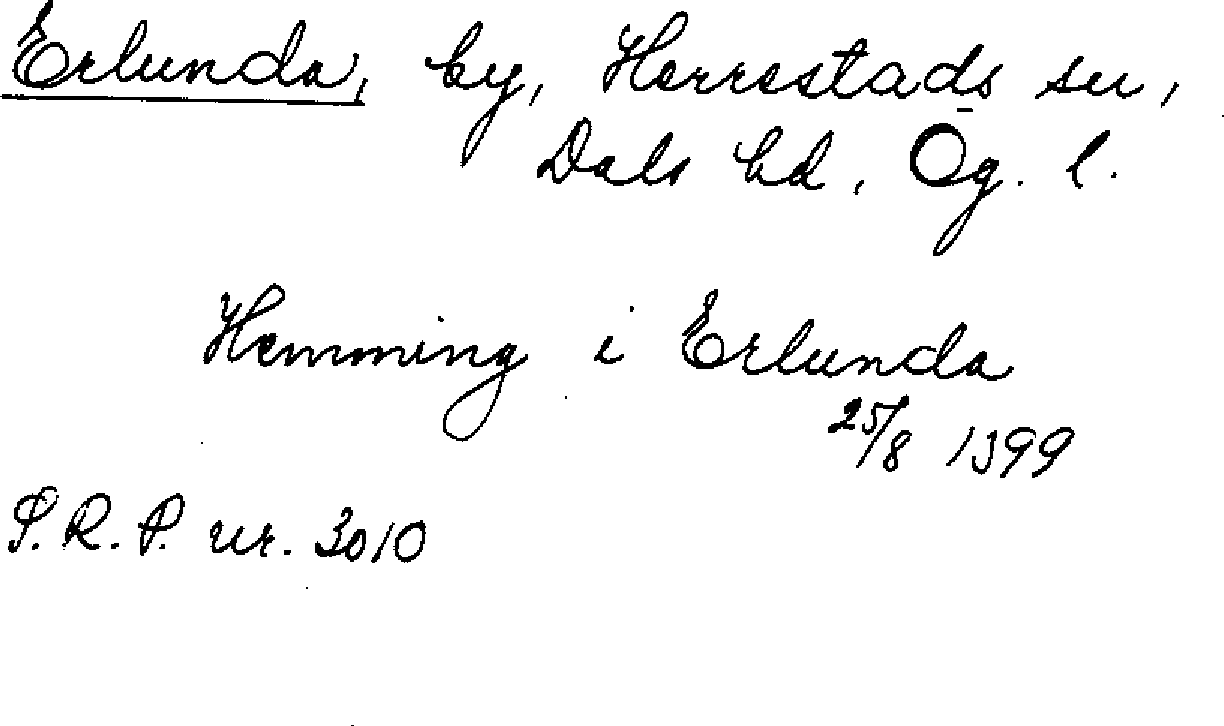 Erlunda, by, Herrestads sn,
Dals hd, Ög. l.
Hemming i Erlunda
25/8 1399
S.R.P. nr. 3010